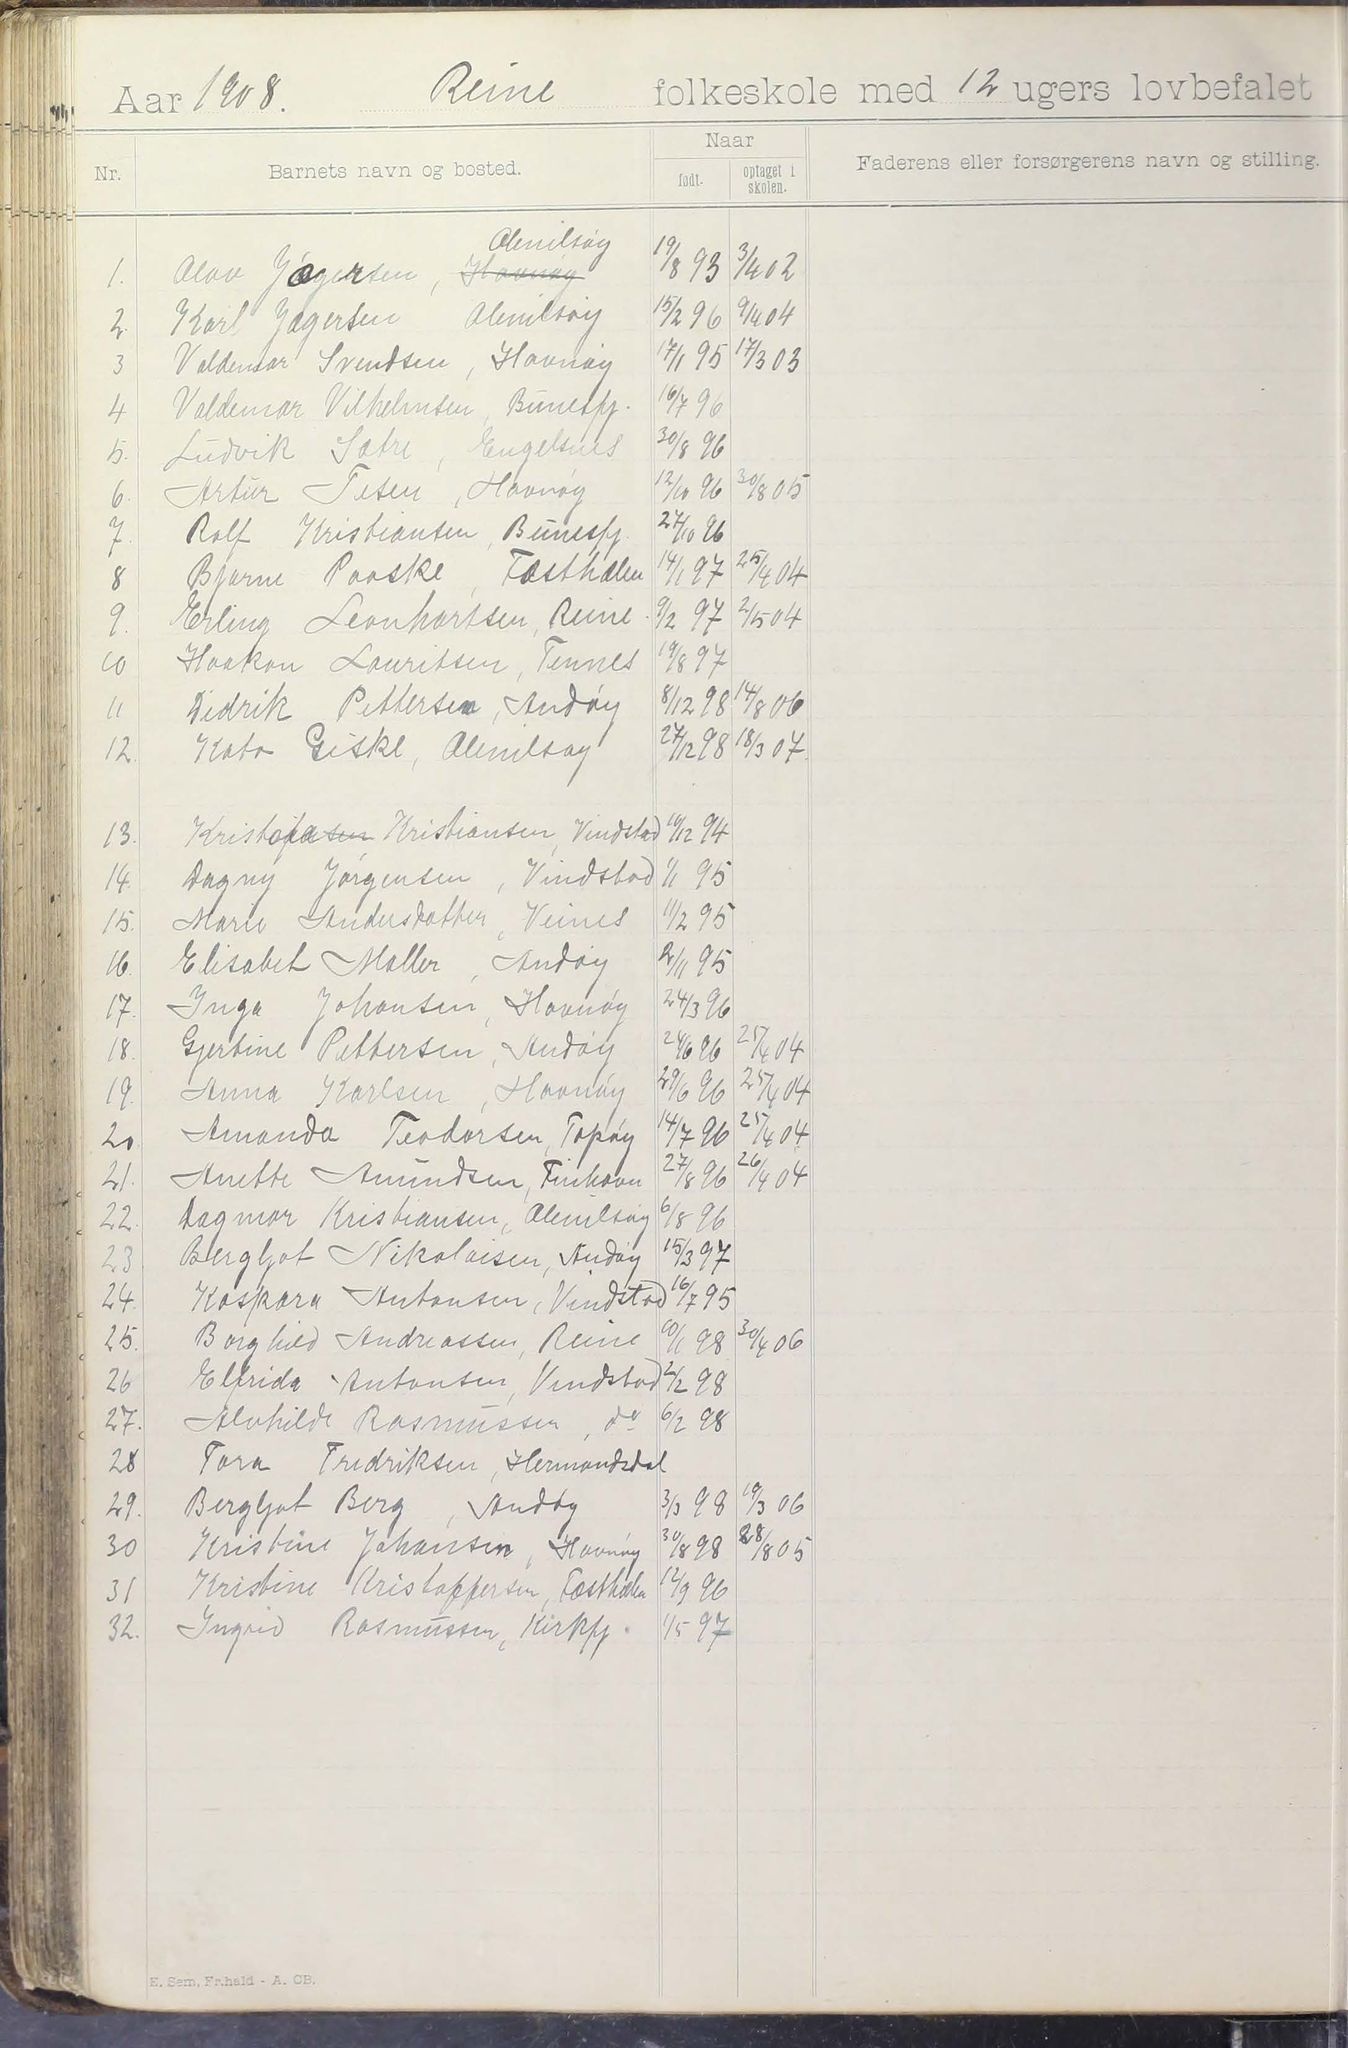 Aar 1908. Reine folkeskole med 12 ugers lovbefalet
Naar
Nr. Barnets navn og bosted. født. optaget i skolen. Faderens eller forsørgerens navn og stilling.
Olenilsøy
1. Olav Jægersen, Havnøy 19/8 93 3/4 02
2. Karl Jægersen Olenilsøy 15/2 96 9/4 04
3 Valdemar Svendsen, Havnøy 17/1 95 17/3 03
4 Valdemar Vilhelmsen, Bunesfj. 16/7 96
5. Ludvik Sætre, Engelsnes 30/8 96
6. Artur Tesen, Havnøy 12/10 96 30/8 05
7. Rolf Kristiansen, Bunesfj. 27/10 96
8 Bjarne Paaske, Fæsthælen 14/1 97 25/4 04
9. Erling Leonhartsen, Reine 9/2 97 2/5 04
10 Haakon Lauritsen, Tennes 19/8 97
11 Didrik Pettersen, Andøy 8/12 98 14/8 06
12. Kato Giske, Olenilsøy 27/12 98 18/3 07.
13. Kristiansen, Vindstad 10/12 94
14. Dagny Jørgensen, Vindstad 1/1 95
15. Marie Andersdatter, Veines 11/2 95
16. Elisabet Møller, Andøy 2/11 95
17. Inga Johansen, Havnøy 24/3 96
18. Gjertine Pettersen, Andøy 24/6 96 25/4 04
19. Anna Karlsen, Havnøy 29/6 96 25/4 04
20. Amanda Teodorsen, Topøy 14/7 96 25/4 04
21. Anette Amundsen, Finhavn 27/8 96 26/4 04
22. Dagmar Kristiansen, Olenilsøy 6/8 96
23 Bergljot Nikolaisen, Andøy 15/3 97
24. Kaspara Antonsen, Vindstad 16/7 95
25. Borghild Andreassen, Reine 10/1 98 30/4 06
26 Elfrida Antonsen, Vindstad 2/2 98
27. Alvhilde Rasmussen, do 6/2 98
28 Tora Fredriksen, Hermandsdal
29. Bergljot Berg, Andøy 3/3 98 19/3 06
30 Kristine Johansen, Havnøy 30/8 98 28/8 05
31 Kristine Kristoffersen, Fæsthælen 12/9 96
32. Ingrid Rasmussen, Kirkfj. 1/5 97
E. Sem, Fr.hald - A. CB.